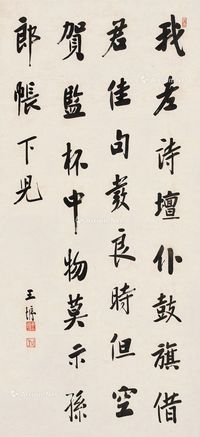 我老詩壇仆鼓旗借
君佳句發良時但空
賀監杯中物莫示孫
郎帳下兒
王壻